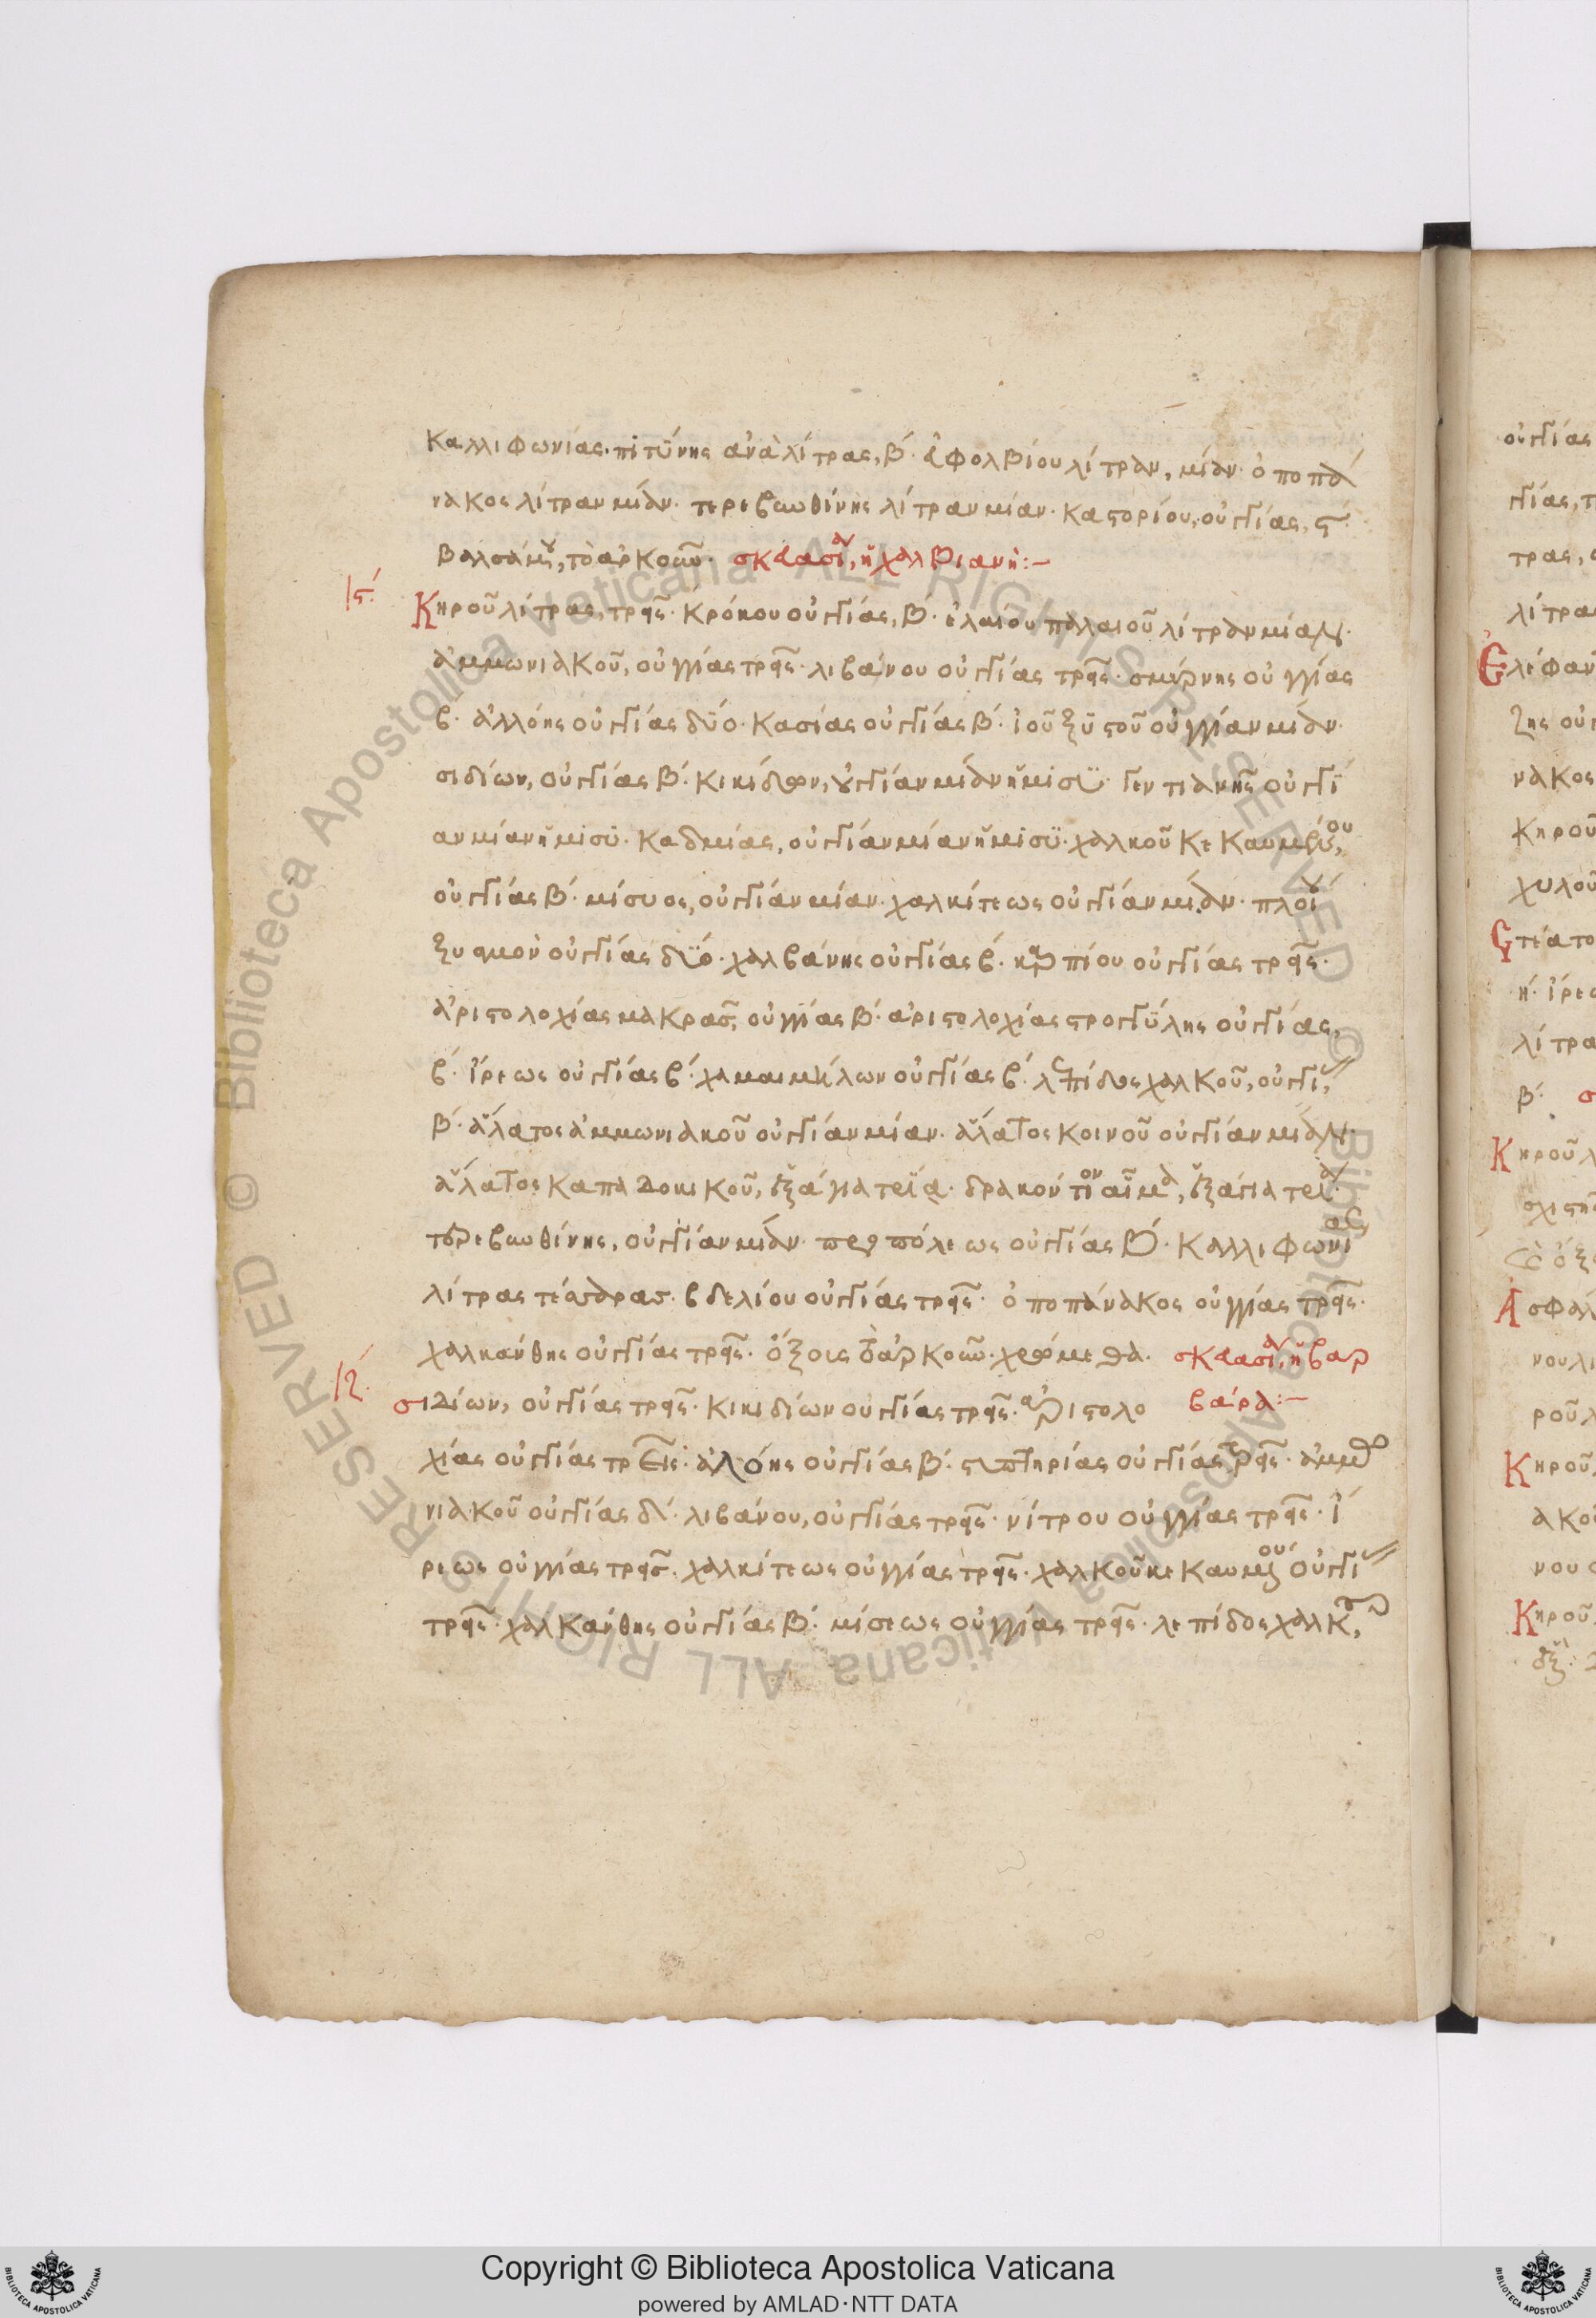 καλλιφωνίας· πιτϋίνης ἀνὰ λίτρας, β΄· ἐφολβίου λίτραν, μίαν· ὀποπά
νακος λίτραν μίαν· τερεβωθίνης λίτραν μίαν· καστορίου, οὐγγίας, ϛ΄·
βαλσάμου, τὸ ἀρκοῦν· σκευασία, ἡ χαλβιανή:-
ιϛ΄. Κηροῦ λίτρας, τρεῖς· κρόκου οὐγγίας, β΄· ἐλαίου παλαιοῦ λίτραν μίαν·
ἀμμωνιακοῦ, οὐγγίας τρεῖς· λιβάνου οὐγγίας τρεῖς· σμύρνης οὐγγίας
β· ἀλλόης οὐγγίας δϋο· κασίας οὐγγίας β΄· ἰοῦ ξϋστοῦ οὐγγίαν μίαν·
σιδίων, οὐγγίας β΄· κικίδων, οὐγγίαν μίαν ἥμισϋ· γεντιανῆς οὐγγί
αν μίαν ἥμισϋ· καδμίας, οὐγγίαν μίαν ἥμισϋ· χαλκοῦ κεκαυμένου,
οὐγγίας β΄· μίσυος, οὐγγίαν μίαν· χαλκίτεως οὐγγίαν μίαν·
οὐγγίας δϋό· χαλβάνης οὐγγίας β΄· οὐγγίας τρεῖς·
ἀριστολοχίας μακρᾶς, οὐγγίας β΄· ἀριστολοχίας στρογγϋλης οὐγγίας,
β΄· ἴρεως οὐγγίας β΄· χαμαιμήλων οὐγγίας β΄· λεπίδος χαλκοῦ, οὐγγί,
β΄· ἄλατος ἀμμωνιακοῦ οὐγγίαν μίαν· ἄλατος κοινοῦ οὐγγίαν μίαν·
ἄλατος καπαδοκικοῦ, ἐξάγια τρία· δρακόντιον αἷμα, ἐξάγια τρία·
τερεβωθίνης, οὐγγίαν μίαν· προπόλεως οὐγγίας β΄· καλλιφωνίας
λίτρας τέσσαρας· βδελίου οὐγγίας τρεῖς· ὀποπάνακος οὐγγίας τρεῖς·
χαλκάνθης οὐγγίας τρεῖς· ὄξοις τὸ ἀρκοῦν· χρώμεθα. σκευασία, ἡ βαρ
βάρα:-
ιζ΄. σιδίων, οὐγγίας τρεῖς· κικιδίων οὐγγίας τρεῖς· ἀριστολο
χίας οὐγγίας τρεῖς· ἀλόης οὐγγίας β΄· στυπτηρίας οὐγγίας τρεῖς· ἀμμω
νιακοῦ οὐγγίας δ΄· λιβάνου, οὐγγίας τρεῖς· νίτρου οὐγγίας τρεῖς· ἴ
ρεως οὐγγίας τρεῖς· χαλκίτεως οὐγγίας τρεῖς· χαλκοῦ κεκαυμένου οὐγγί
τρεῖς· χαλκάνθης οὐγγίας β΄· μίσεως οὐγγίας τρεῖς· λεπίδος χαλκοῦ,
Copyright © Biblioteca Apostolica Vaticana
powered by AMLAD·NTT DATA